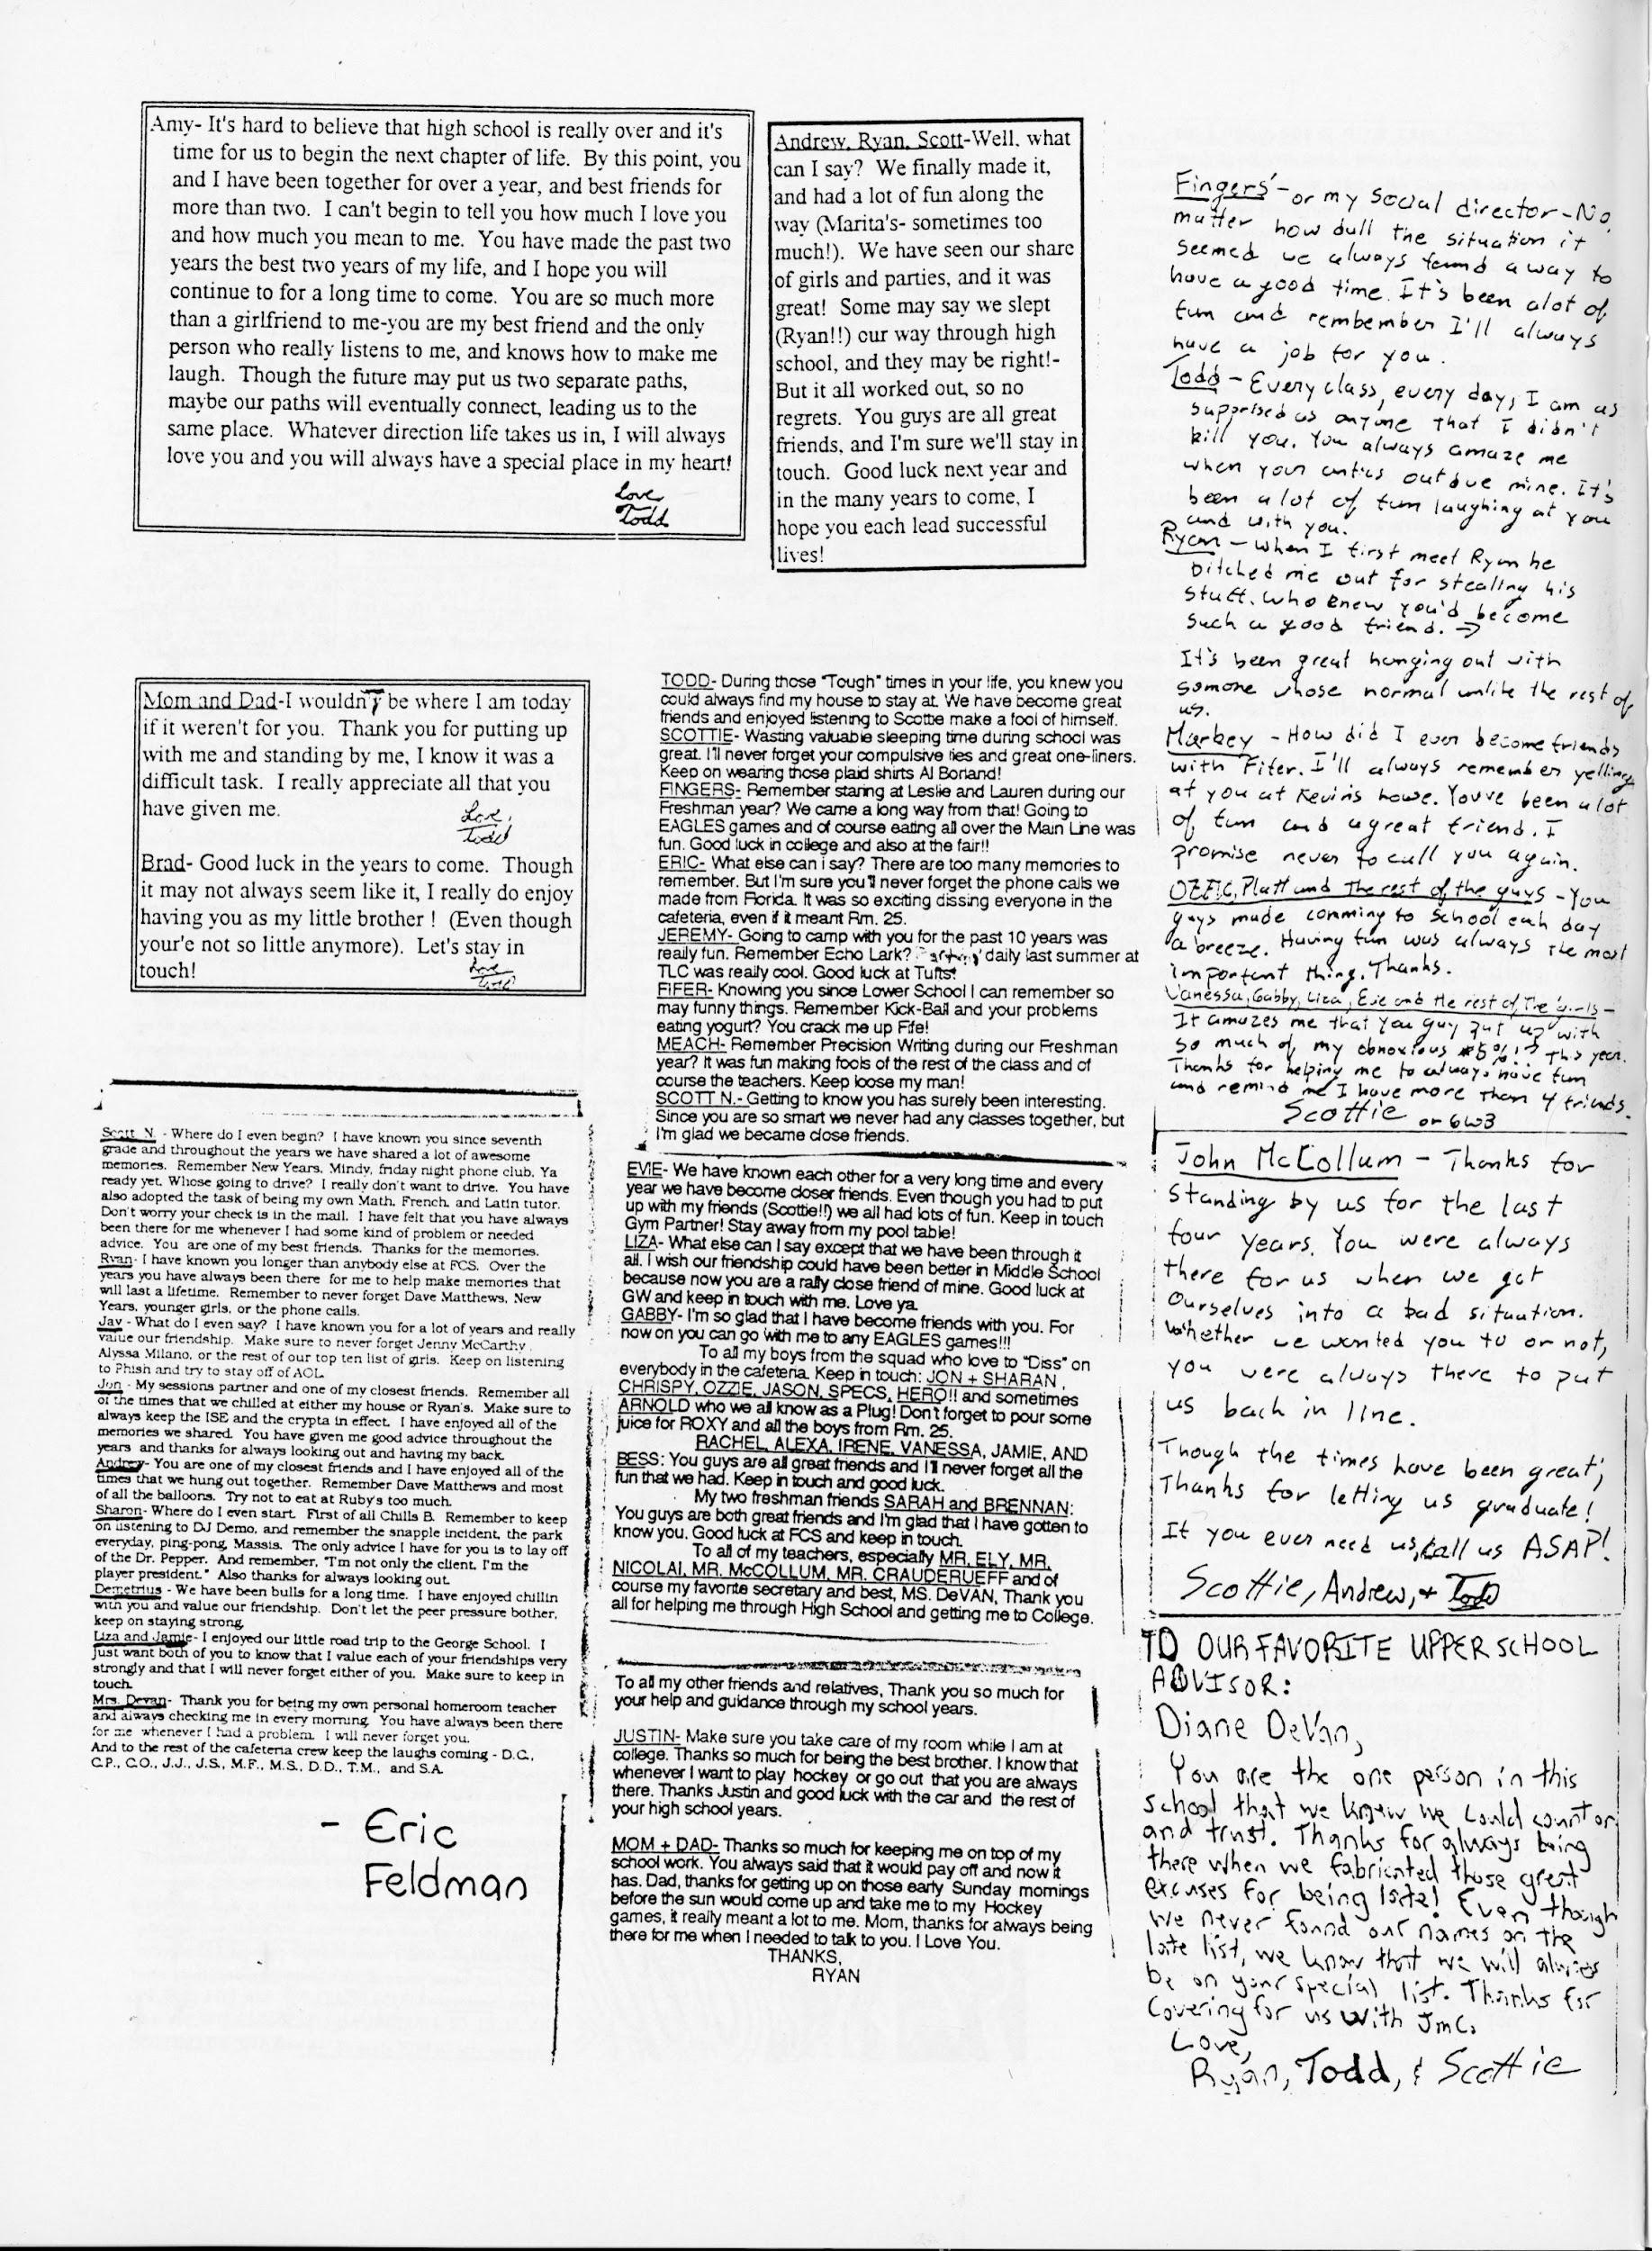 Amy- It's hard to believe that high school is really over and it's
time for us to begin the next chapter of life. By this point, you
and I have been together for over a year, and best friends for
more than two. I can't begin to tell you how much I love you
and how much you mean to me. You have made the past two
years the best two years of my life, and I hope you will
continue to for a long time to come. You are so much more
than a girlfriend to me-you are my best friend and the only
person who really listens to me, and knows how to make me
laugh. Though the future may put us two separate paths,
maybe our paths will eventually connect, leading us to the
same place. Whatever direction life takes us in, I will always
love you and you will always have a special place in my heart!
Love
Todd
Andrew, Ryan, Scott-Well, what
can I say? We finally made it,
and had a lot of fun along the
way (Marita's- sometimes too
much!). We have seen our share
of girls and parties, and it was
great! Some may say we slept
(Ryan!!) our way through high
school, and they may be right!-
But it all worked out, so no
regrets. You guys are all great
friends, and I'm sure we'll stay in
touch. Good luck next year and
in the many years to come, I
hope you each lead successful
lives!
Mom and Dad-I wouldn't be where I am today
if it weren't for you. Thank you for putting up
with me and standing by me, I know it was a
difficult task. I really appreciate all that you
have given me.
Love,
Todd
Brad- Good luck in the years to come. Though
it may not always seem like it, I really do enjoy
having you as my little brother ! (Even though
your'e not so little anymore). Let's stay in
touch!
Love
Todd
Scott N. - Where do I even begin? I have known you since seventh
grade and throughout the years we have shared a lot of awesome
memories. Remember New Years, Mindy, friday night phone club. Ya
ready yet. Whose going to drive? I really don't want to drive. You have
also adopted the task of being my own Math, French, and Latin tutor.
Don't worry your check is in the mail. I have felt that you have always
been there for me whenever I had some kind of problem or needed
advice. You are one of my best friends. Thanks for the memories.
Ryan- I have known you longer than anybody else at FCS. Over the
years you have always been there for me to help make memories that
will last a lifetime. Remember to never forget Dave Matthews, New
Years, younger girls, or the phone calls.
Jay - What do I even say? I have known you for a lot of years and really
value our friendship. Make sure to never forget Jenny McCarthy,
Alyssa Milano, or the rest of our top ten list of girls. Keep on listening
to Phish and try to stay off of AOL.
Jon - My sessions partner and one of my closest friends. Remember all
of the times that we chilled at either my house or Ryan's. Make sure to
always keep the ISE and the crypta in effect. I have enjoyed all of the
memories we shared. You have given me good advice throughout the
years and thanks for always looking out and having my back.
Andrew- You are one of my closest friends and I have enjoyed all of the
times that we hung out together. Remember Dave Matthews and most
of all the balloons. Try not to eat at Ruby's too much.
Sharon- Where do I even start. First of all Chills B. Remember to keep
on listening to DJ Demo, and remember the snapple incident, the park
everyday, ping-pong, Massis. The only advice I have for you is to lay off
of the Dr. Pepper. And remember, "I'm not only the client, I'm the
player president." Also thanks for always looking out.
Demetrius - We have been bulls for a long time. I have enjoyed chillin
with you and value our friendship. Don't let the peer pressure bother,
keep on staying strong.
Liza and Jamie- I enjoyed our little road trip to the George School. I
just want both of you to know that I value each of your friendships very
strongly and that I will never forget either of you. Make sure to keep in
touch.
Mrs. Devan- Thank you for being my own personal homeroom teacher
and always checking me in every morning. You have always been there
for me whenever I had a problem. I will never forget you.
And to the rest of the cafeteria crew keep the laughs coming - D.C.,
C.P., C.O., J.J., J.S., M.F., M.S., D.D., T.M., and S.A.
- Eric
Feldman
TODD- During those "Tough" times in your life, you knew you
could always find my house to stay at. We have become great
friends and enjoyed listening to Scottie make a fool of himself.
SCOTTIE- Wasting valuable sleeping time during school was
great. I'll never forget your compulsive lies and great one-liners.
Keep on wearing those plaid shirts Al Borland!
FINGERS- Remember staring at Leslie and Lauren during our
Freshman year? We came a long way from that! Going to
EAGLES games and of course eating all over the Main Line was
fun. Good luck in college and also at the fair!!
ERIC- What else can i say? There are too many memories to
remember. But I'm sure you'll never forget the phone calls we
made from Florida. It was so exciting dissing everyone in the
cafeteria, even if it meant Rm. 25.
JEREMY- Going to camp with you for the past 10 years was
really fun. Remember Echo Lark? Partying daily last summer at
TLC was really cool. Good luck at Tufts!
FIFER- Knowing you since Lower School I can remember so
may funny things. Remember Kick-Ball and your problems
eating yogurt? You crack me up Fife!
MEACH- Remember Precision Writing during our Freshman
year? It was fun making fools of the rest of the class and of
course the teachers. Keep loose my man!
SCOTT N.- Getting to know you has surely been interesting.
Since you are so smart we never had any classes together, but
I'm glad we became close friends.
EVIE- We have known each other for a very long time and every
year we have become closer friends. Even though you had to put
up with my friends (Scottie!!) we all had lots of fun. Keep in touch
Gym Partner! Stay away from my pool table!
LIZA- What else can I say except that we have been through it
all. I wish our friendship could have been better in Middle School
because now you are a rally close friend of mine. Good luck at
GW and keep in touch with me. Love ya.
GABBY- I'm so glad that I have become friends with you. For
now on you can go with me to any EAGLES games!!!
To all my boys from the squad who love to "Diss" on
everybody in the cafeteria. Keep in touch: JON + SHARAN,
CHRISPY, OZZIE, JASON, SPECS, HERO!! and sometimes
ARNOLD who we all know as a Plug! Don't forget to pour some
juice for ROXY and all the boys from Rm. 25.
RACHEL, ALEXA, IRENE, VANESSA, JAMIE, AND
BESS: You guys are all great friends and I'll never forget all the
fun that we had. Keep in touch and good luck.
My two freshman friends SARAH and BRENNAN:
You guys are both great friends and I'm glad that I have gotten to
know you. Good luck at FCS and keep in touch.
To all of my teachers, especially MR. ELY, MR.
NICOLAI, MR. McCOLLUM, MR. CRAUDERUEFF and of
course my favorite secretary and best, MS. DeVAN, Thank you
all for helping me through High School and getting me to College.
To all my other friends and relatives, Thank you so much for
your help and guidance through my school years.
JUSTIN- Make sure you take care of my room while I am at
college. Thanks so much for being the best brother. I know that
whenever I want to play hockey or go out that you are always
there. Thanks Justin and good luck with the car and the rest of
your high school years.
MOM + DAD- Thanks so much for keeping me on top of my
school work. You always said that it would pay off and now it
has. Dad, thanks for getting up on those early Sunday mornings
before the sun would come up and take me to my Hockey
games, it really meant a lot to me. Mom, thanks for always being
there for me when I needed to talk to you. I Love You.
THANKS,
RYAN
Fingers'-or my social director-No
matter how dull the situation it
seemed we always found a way to
have a good time. It's been alot of
fun and rembember I'll always
have a job for you.
Todd - Every class, every day, I am as
supprised as anyone that I didn't
kill you. You always amaze me
when your antics outdue mine. It's
been a lot of fun laughing at you
and with you.
Ryan - When I first meet Ryan he
bitched me out for stealing his
stuff. Who knew you'd become
such a good friend. →
It's been great hanging out with
somone whose normal unlike the rest of
us.
Markey - How did I ever become friends
with Fifer. I'll always remember yelling
at you at Kevin's howe. Youve been a lot
of fun and a great friend. I
promise never to call you again.
OZZIE, Platt and The rest of the guys - You
guys made comming to school each day
a breeze. Having fun was always the most
important thing. Thanks.
Vanessa, Gabby, Liza, Evie and the rest of the girls -
It amazes me that you guy put up with
so much of my obnoxious #$%!? this year.
Thanks for helping me to always have fun
and remind me I have more than 4 friends.
Scottie or 6w3
John McCollum - Thanks for
standing by us for the last
four years. You were always
there for us when we got
ourselves into a bad situation.
Whether we wanted you to or not,
you were always there to put
us back in line.
Though the times have been great,
Thanks for letting us graduate!
If you ever need us, call us ASAP!
Scottie, Andrew, + Todd
TO OUR FAVORITE UPPER SCHOOL
ADVISOR:
Diane DeVan,
You are the one person in this
school that we knew we could count on
and trust. Thanks for always being
there when we fabricated those great
excuses for being late! Even though
we never found our names on the
late list, we know that we will always
be on your special list. Thanks for
Covering for us with JMC.
Love,
Ryan, Todd, & Scottie